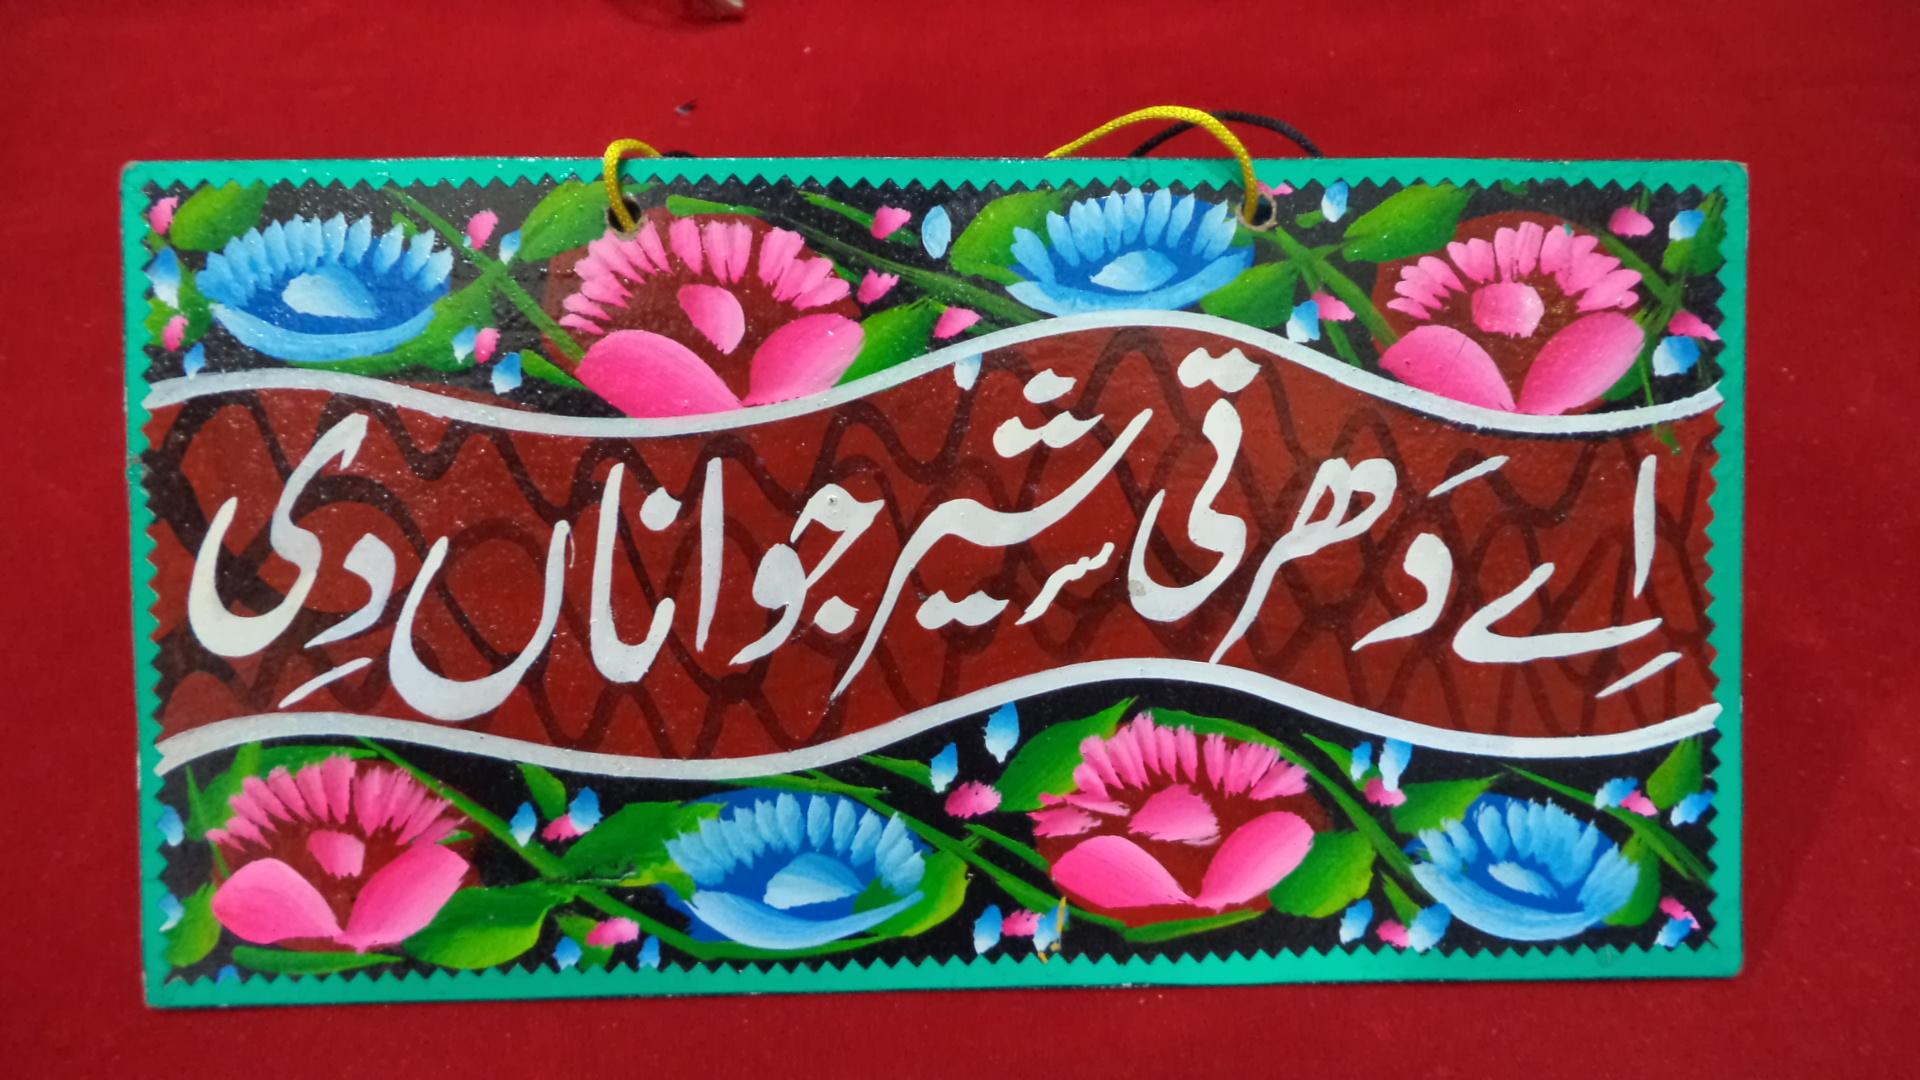 اِے دَھرتی شیر جواناں دِی